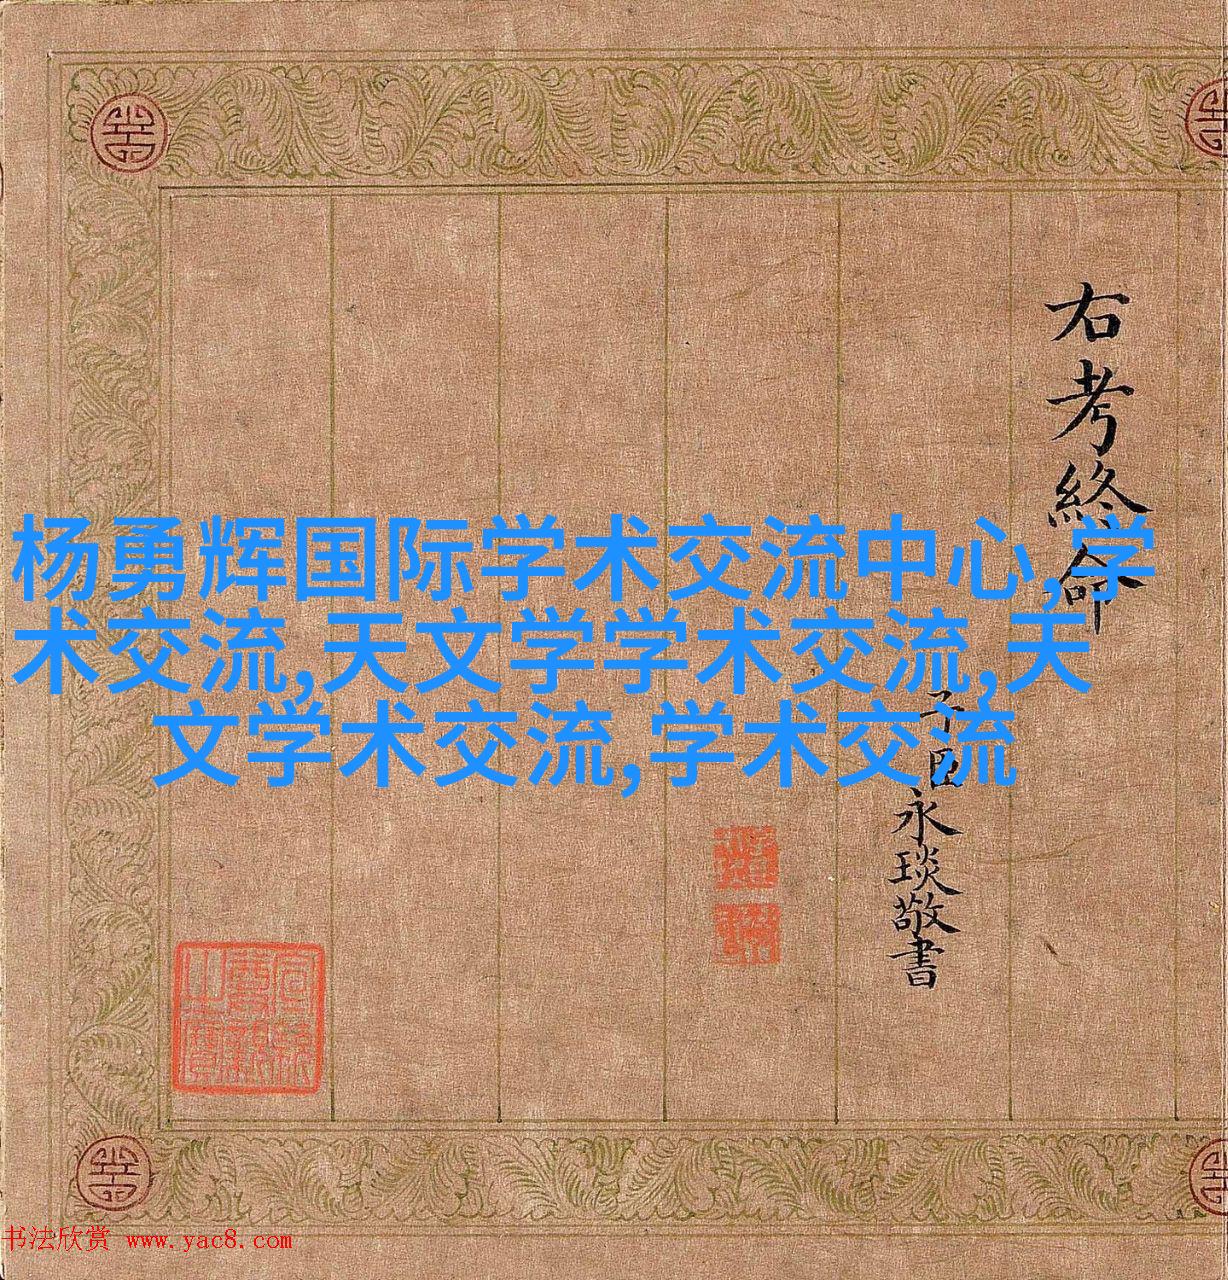 杨勇辉国际学术交流中心,学
术交流,天文学学术交流,天
文学术交流,学术交流
右考終命
子臣永琰敬書
书法欣赏 www.yac8.com